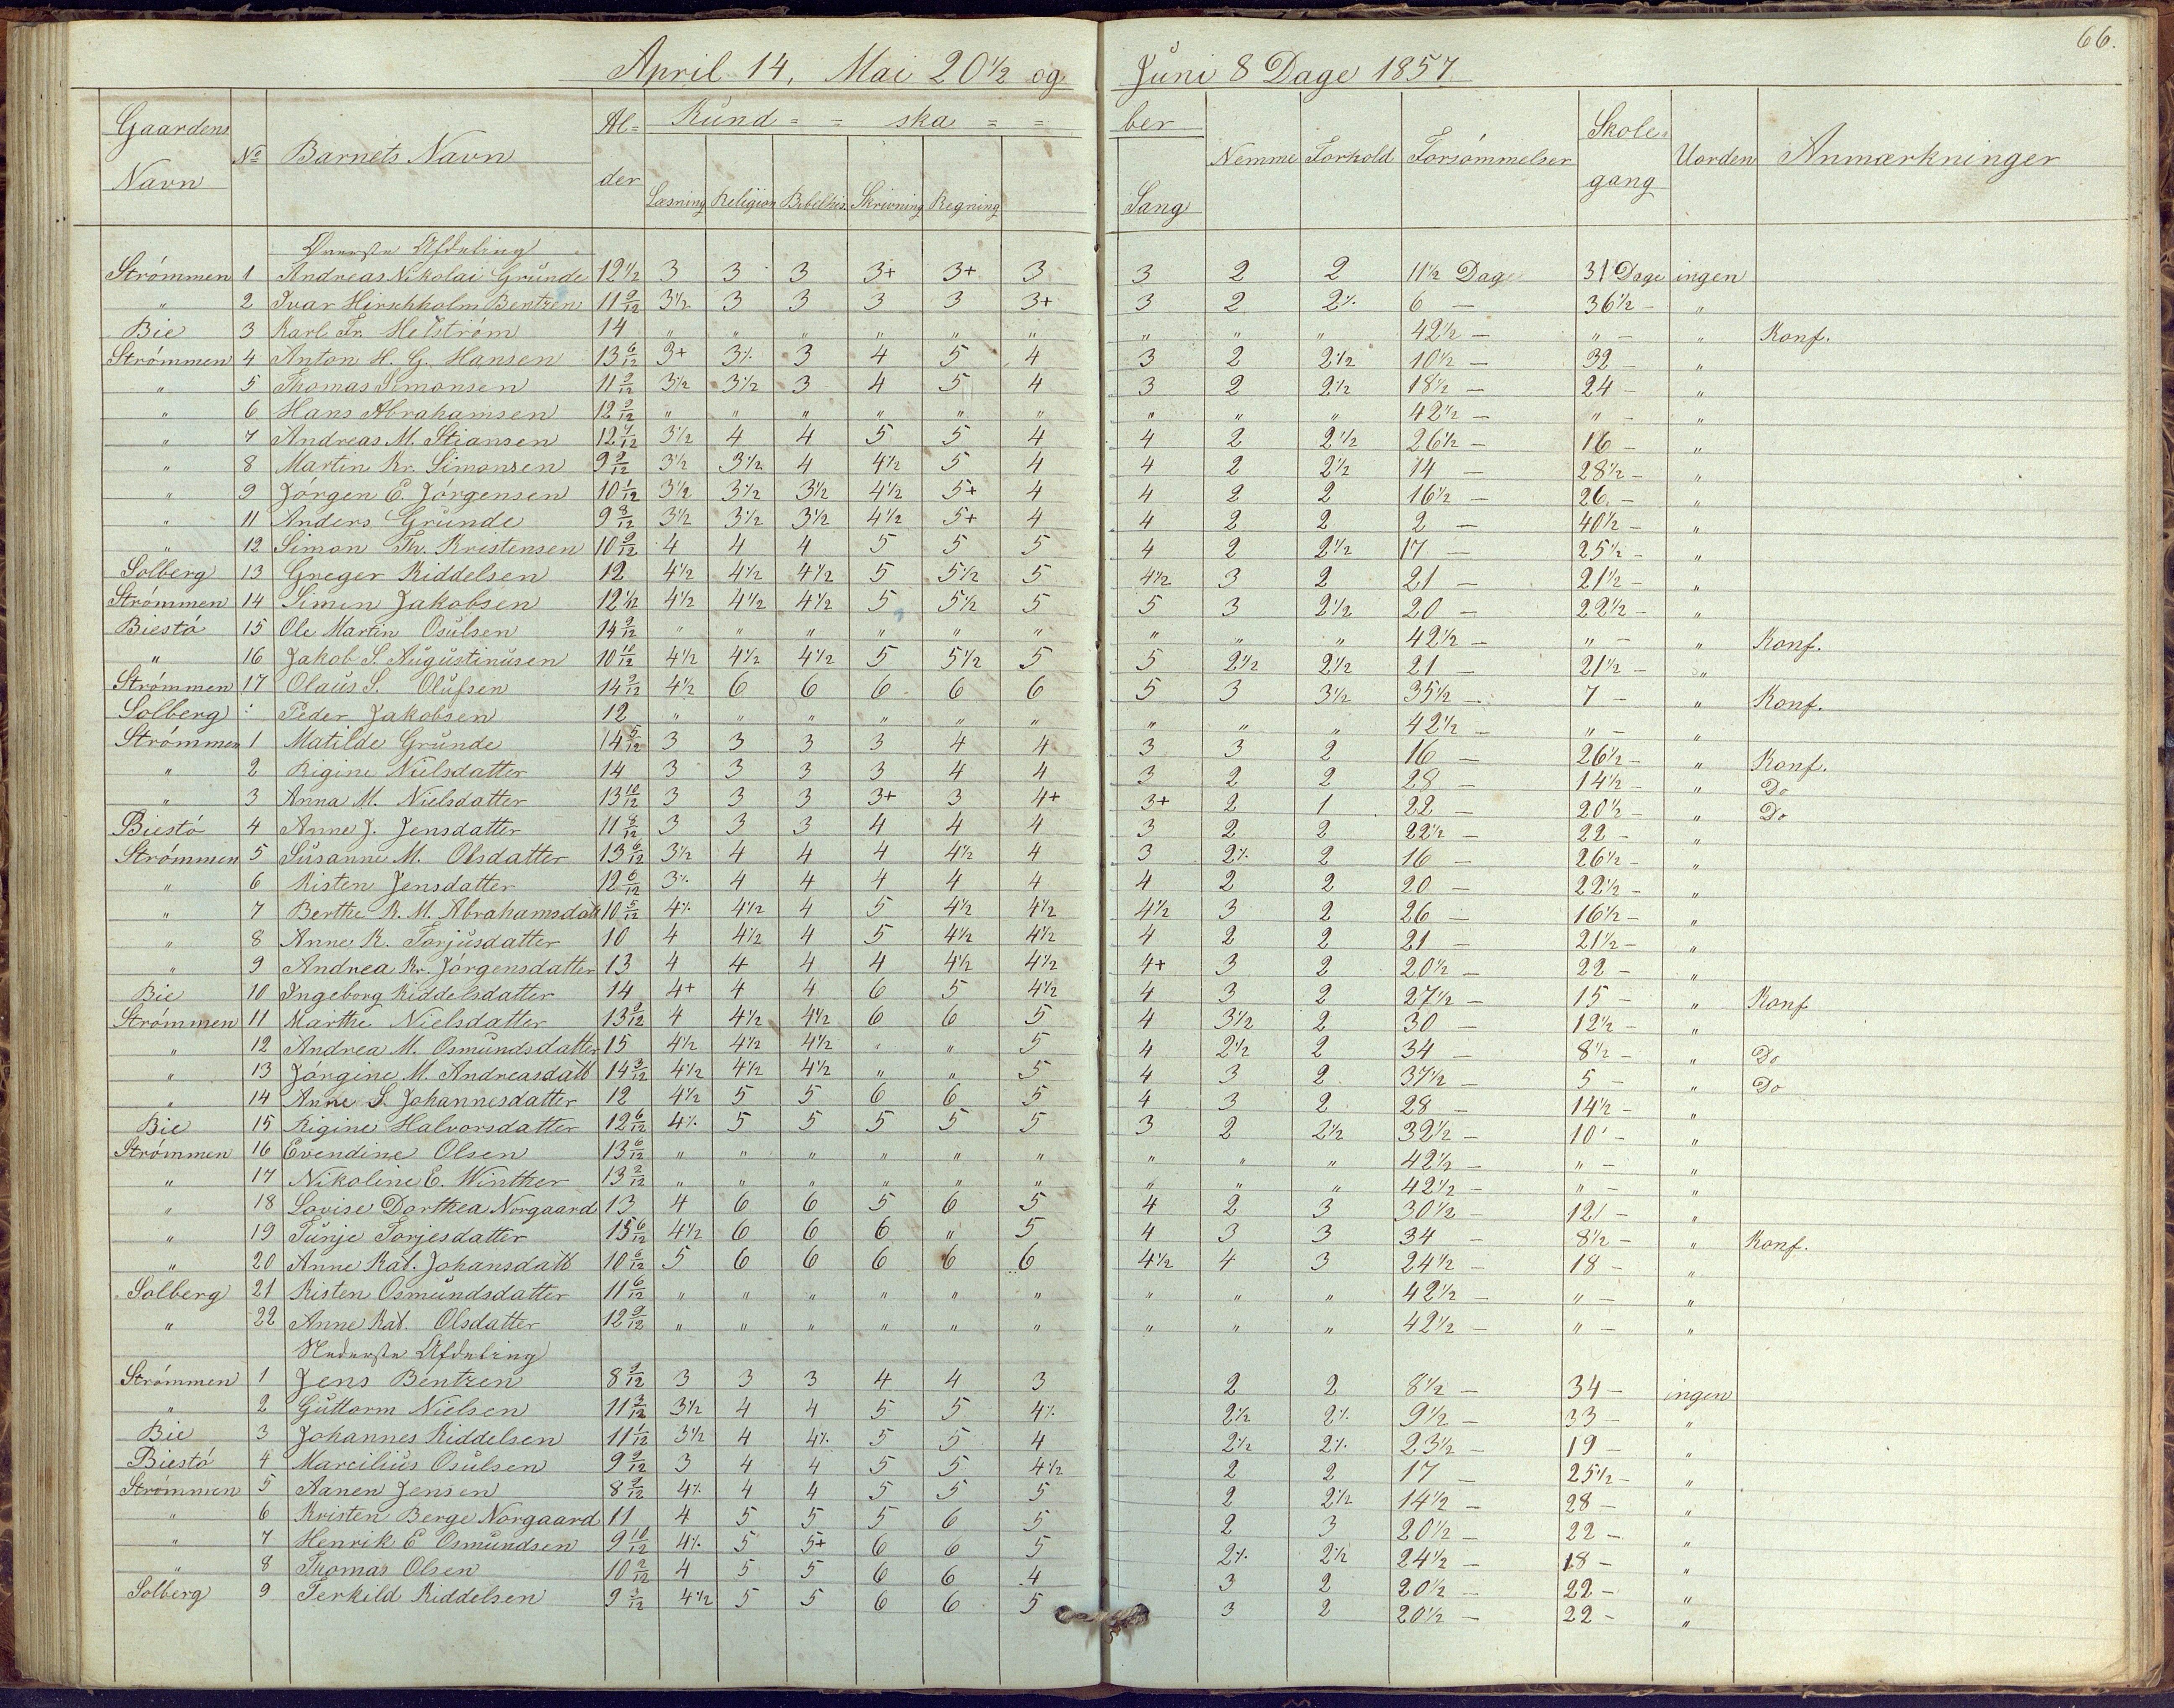 66.
April 14, Mai 20 1/2 og Juni 8 Dage 1857
Gaardens Navn No Barnets Navn Alder Kundskaber Nemme Forhold Forsömmelser Skolegang Uorden Anmærkninger
Læsning Religion Bibelhis. Skrivning Regning Sang
Överste Afdeling
Strömmen 1 Andreas Nikolai Grunde 12 1/2 3 3 3 3+ 3+ 3 3 2 2 11 1/2 Dage 31 Dage ingen
" 2 Ivar Hirschholm Bentzen 11 9/12 3 1/2 3 3 3 3 3+ 3 2 2 ./. 6 — 36 1/2 — "
Bie 3 Karl Fr. Helström 14 " " " " " " " " " 42 1/2 — " — " Konf.
Strömmen 4 Anton H. G. Hansen 13 6/12 3+ 3 ./. 3 4 5 4 3 2 2 1/2 10 1/2 — 32 — "
" 5 Thomas Simonsen 11 9/12 3 1/2 3 1/2 3 4 5 4 3 2 2 1/2 18 1/2 — 24 — "
" 6 Hans Abrahamsen 12 9/12 " " " " " " " " " 42 1/2 — " — "
" 7 Andreas M. Stiansen 12 7/12 3 1/2 4 4 5 5 4 4 2 2 1/2 26 1/2 — 16 — "
" 8 Martin Kr. Simonsen 9 9/12 3 1/2 3 1/2 4 4 1/2 5 4 4 2 2 1/2 14 — 28 1/2 — "
" 9 Jörgen E. Jörgensen 10 1/12 3 1/2 3 1/2 3 1/2 4 1/2 5+ 4 4 2 2 16 1/2 — 26 — "
" 11 Anders Grunde 9 8/12 3 1/2 3 1/2 3 1/2 4 1/2 5+ 4 4 2 2 2 — 40 1/2 — "
" 12 Simon Th. Kristensen 10 9/12 4 4 4 5 5 5 4 2 2 1/2 17 — 25 1/2 — "
Solberg 13 Greger Kiddelsen 12 4 1/2 4 1/2 4 1/2 5 5 1/2 5 4 1/2 3 2 21 — 21 1/2 — "
Strömmen 14 Simen Jakobsen 12 1/12 4 1/2 4 1/2 4 1/2 5 5 1/2 5 5 3 2 1/2 20 — 22 1/2 — "
Biestö 15 Ole Martin Osulsen 14 9/12 " " " " " " " " " 42 1/2 — " — " Konf.
" 16 Jakob S. Augustinusen 10 10/12 4 1/2 4 1/2 4 1/2 5 5 1/2 5 5 2 1/2 2 1/2 21 — 21 1/2 — "
Strömmen 17 Olaus S. Olufsen 14 9/12 4 1/2 6 6 6 6 6 5 3 3 1/2 35 1/2 — 7 — " Konf.
Solberg : Peder Jakobsen 12 " " " " " " " " " 42 1/2 — " — "
Strömmen 1 Matilde Grunde 14 5/12 3 3 3 3 4 4 3 3 2 16 — 26 1/2 — " Konf.
" 2 Rigine Nielsdatter 14 3 3 3 3 4 4 3 2 2 28 — 14 1/2 — " Do
" 3 Anna M. Nielsdatter 13 10/12 3 3 3 3+ 3 4+ 3+ 2 1 22 — 20 1/2 — " Do
Biestö 4 Anne J. Jensdatter 11 8/12 3 3 3 4 4 4 3 2 2 22 1/2 — 22 — "
Strömmen 5 Susanne M. Olsdatter 13 6/12 3 1/2 4 4 4 4 1/2 4 3 2 ./. 2 16 — 26 1/2 — "
" 6 Kisten Jensdatter 12 6/12 3 ./. 4 4 4 4 4 4 2 2 20 — 22 1/2 — "
" 7 Berthe K. M. Abrahamsdatt 10 5/12 4 ./. 4 1/2 4 5 4 1/2 4 1/2 4 1/2 3 2 26 — 16 1/2 — "
" 8 Anne K. Torjusdatter 10 4 4 1/2 4 5 4 1/2 4 1/2 4 2 2 21 — 21 1/2 — "
" 9 Andrea Kr. Jörgensdatter 13 4 4 4 4 4 1/2 4 1/2 4+ 3 2 20 1/2 — 22 — "
Bie 10 Ingeborg Kiddelsdatter 14 4+ 4 4 6 5 4 1/2 4 3 2 27 1/2 — 15 — " Konf
Strömmen 11 Marthe Nielsdatter 13 9/12 4 4 1/2 4 1/2 6 6 5 4 3 1/2 2 30 — 12 1/2 — "
" 12 Andrea M. Osmundsdatter 15 4 1/2 4 1/2 4 1/2 " " 5 4 2 1/2 2 34 — 8 1/2 — " Do
" 13 Jörgine M. Andreasdatt 14 3/12 4 1/2 4 1/2 4 1/2 " " 5 4 3 2 37 1/2 — 5 — " Do
" 14 Anne S. Johannesdatter 12 4 1/2 5 5 6 6 5 4 3 2 28 — 14 1/2 — "
Bie 15 Rigine Halvorsdatter 12 6/12 4 ./. 5 5 5 5 5 3 2 2 1/2 32 1/2 — 10 — "
Strömmen 16 Evendine Olsen 13 6/12 " " " " " " " " " 42 1/2 — " — "
" 17 Nikoline E. Winther 13 2/12 " " " " " " " " " 42 1/2 — " — "
" 18 Lovise Dorthea Norgaard 13 4 6 6 5 6 5 4 2 3 30 1/2 — 12 — "
" 19 Tunje Torjesdatter 15 6/12 4 1/2 6 6 6 " 5 4 3 3 34 — 8 1/2 — " Konf.
" 20 Anne Kat. Johansdatt 10 6/12 5 6 6 6 6 6 4 1/2 4 3 24 1/2 — 18 — "
Solberg 21 Kisten Osmundsdatter 11 6/12 " " " " " " " " " 42 1/2 — " — "
" 22 Anne Kat. Olsdatter 12 9/12 " " " " " " " " " 42 1/2 — " — "
Nederste Afdeling
Strömmen 1 Jens Bentzen 8 9/12 3 3 3 4 4 3 2 2 8 1/2 — 34 — ingen
" 2 Guttorm Nielsen 11 3/12 3 1/2 4 4 5 5 4 ./. 2 1/2 2 ./. 9 1/2 — 33 — "
Bie 3 Johannes Kiddelsen 11 1/12 3 1/2 4 4 ./. 5 5 4 2 1/2 2 ./. 23 1/2 — 19 — "
Biestö 4 Marcilius Osulsen 9 9/12 3 4 4 5 5 4 1/2 2 2 17 — 25 1/2 — "
Strömmen 5 Aanen Jensen 8 9/12 4 ./. 4 4 5 5 5 2 2 1/2 14 1/2 — 28 — "
" 6 Kristen Berge Norgaard 11 4 5 5 5 6 5 2 3 20 1/2 — 22 — "
" 7 Henrik E Osmundsen 9 10/12 4 ./. 5 5+ 6 6 5 2 ./. 2 1/2 24 1/2 — 18 — "
" 8 Thomas Olsen 10 2/12 4 5 5 6 6 4 3 2 20 1/2 — 22 — "
Solberg 9 Terkild Kiddelsen 9 3/12 4 1/2 5 5 6 6 5 3 2 20 1/2 — 22 — "